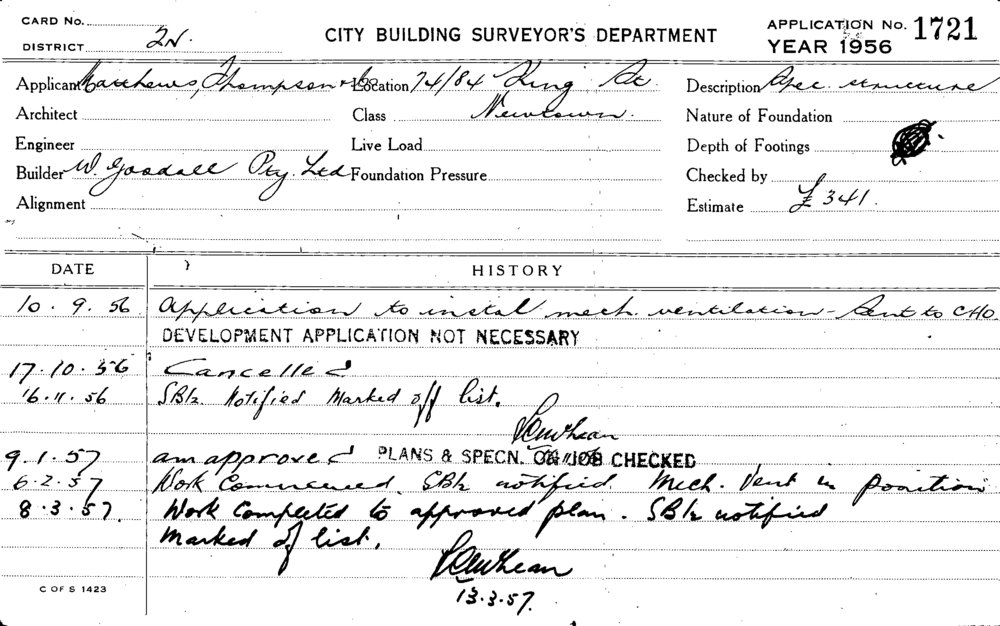 CARD No.
DISTRICT 2N.
CITY BUILDING SURVEYOR'S DEPARTMENT
APPLICATION No. 1721
YEAR 1956
Applicant Matthews, Thompson & Co Location 74/84 King St. Description Spec. structure
Architect Class Newtown. Nature of Foundation
Engineer Live Load Depth of Footings
Builder W. Goodall Pty. Ltd Foundation Pressure Checked by
Alignment Estimate £341.
DATE HISTORY
10.9.56 Application to instal mech. ventilation - Sent to CHO
DEVELOPMENT APPLICATION NOT NECESSARY
17.10.56 Cancelled
16.11.56 SBIr Notified Marked off list.
9.1.57 am approved PLANS & SPECN. ON JOB CHECKED
6.2.57 Work Commenced. SBIr notified. Mech. Vent in position
8.3.57. Work Completed to approved plan. SBIr notified
Marked off list.
13.3.57.
C OF S 1423